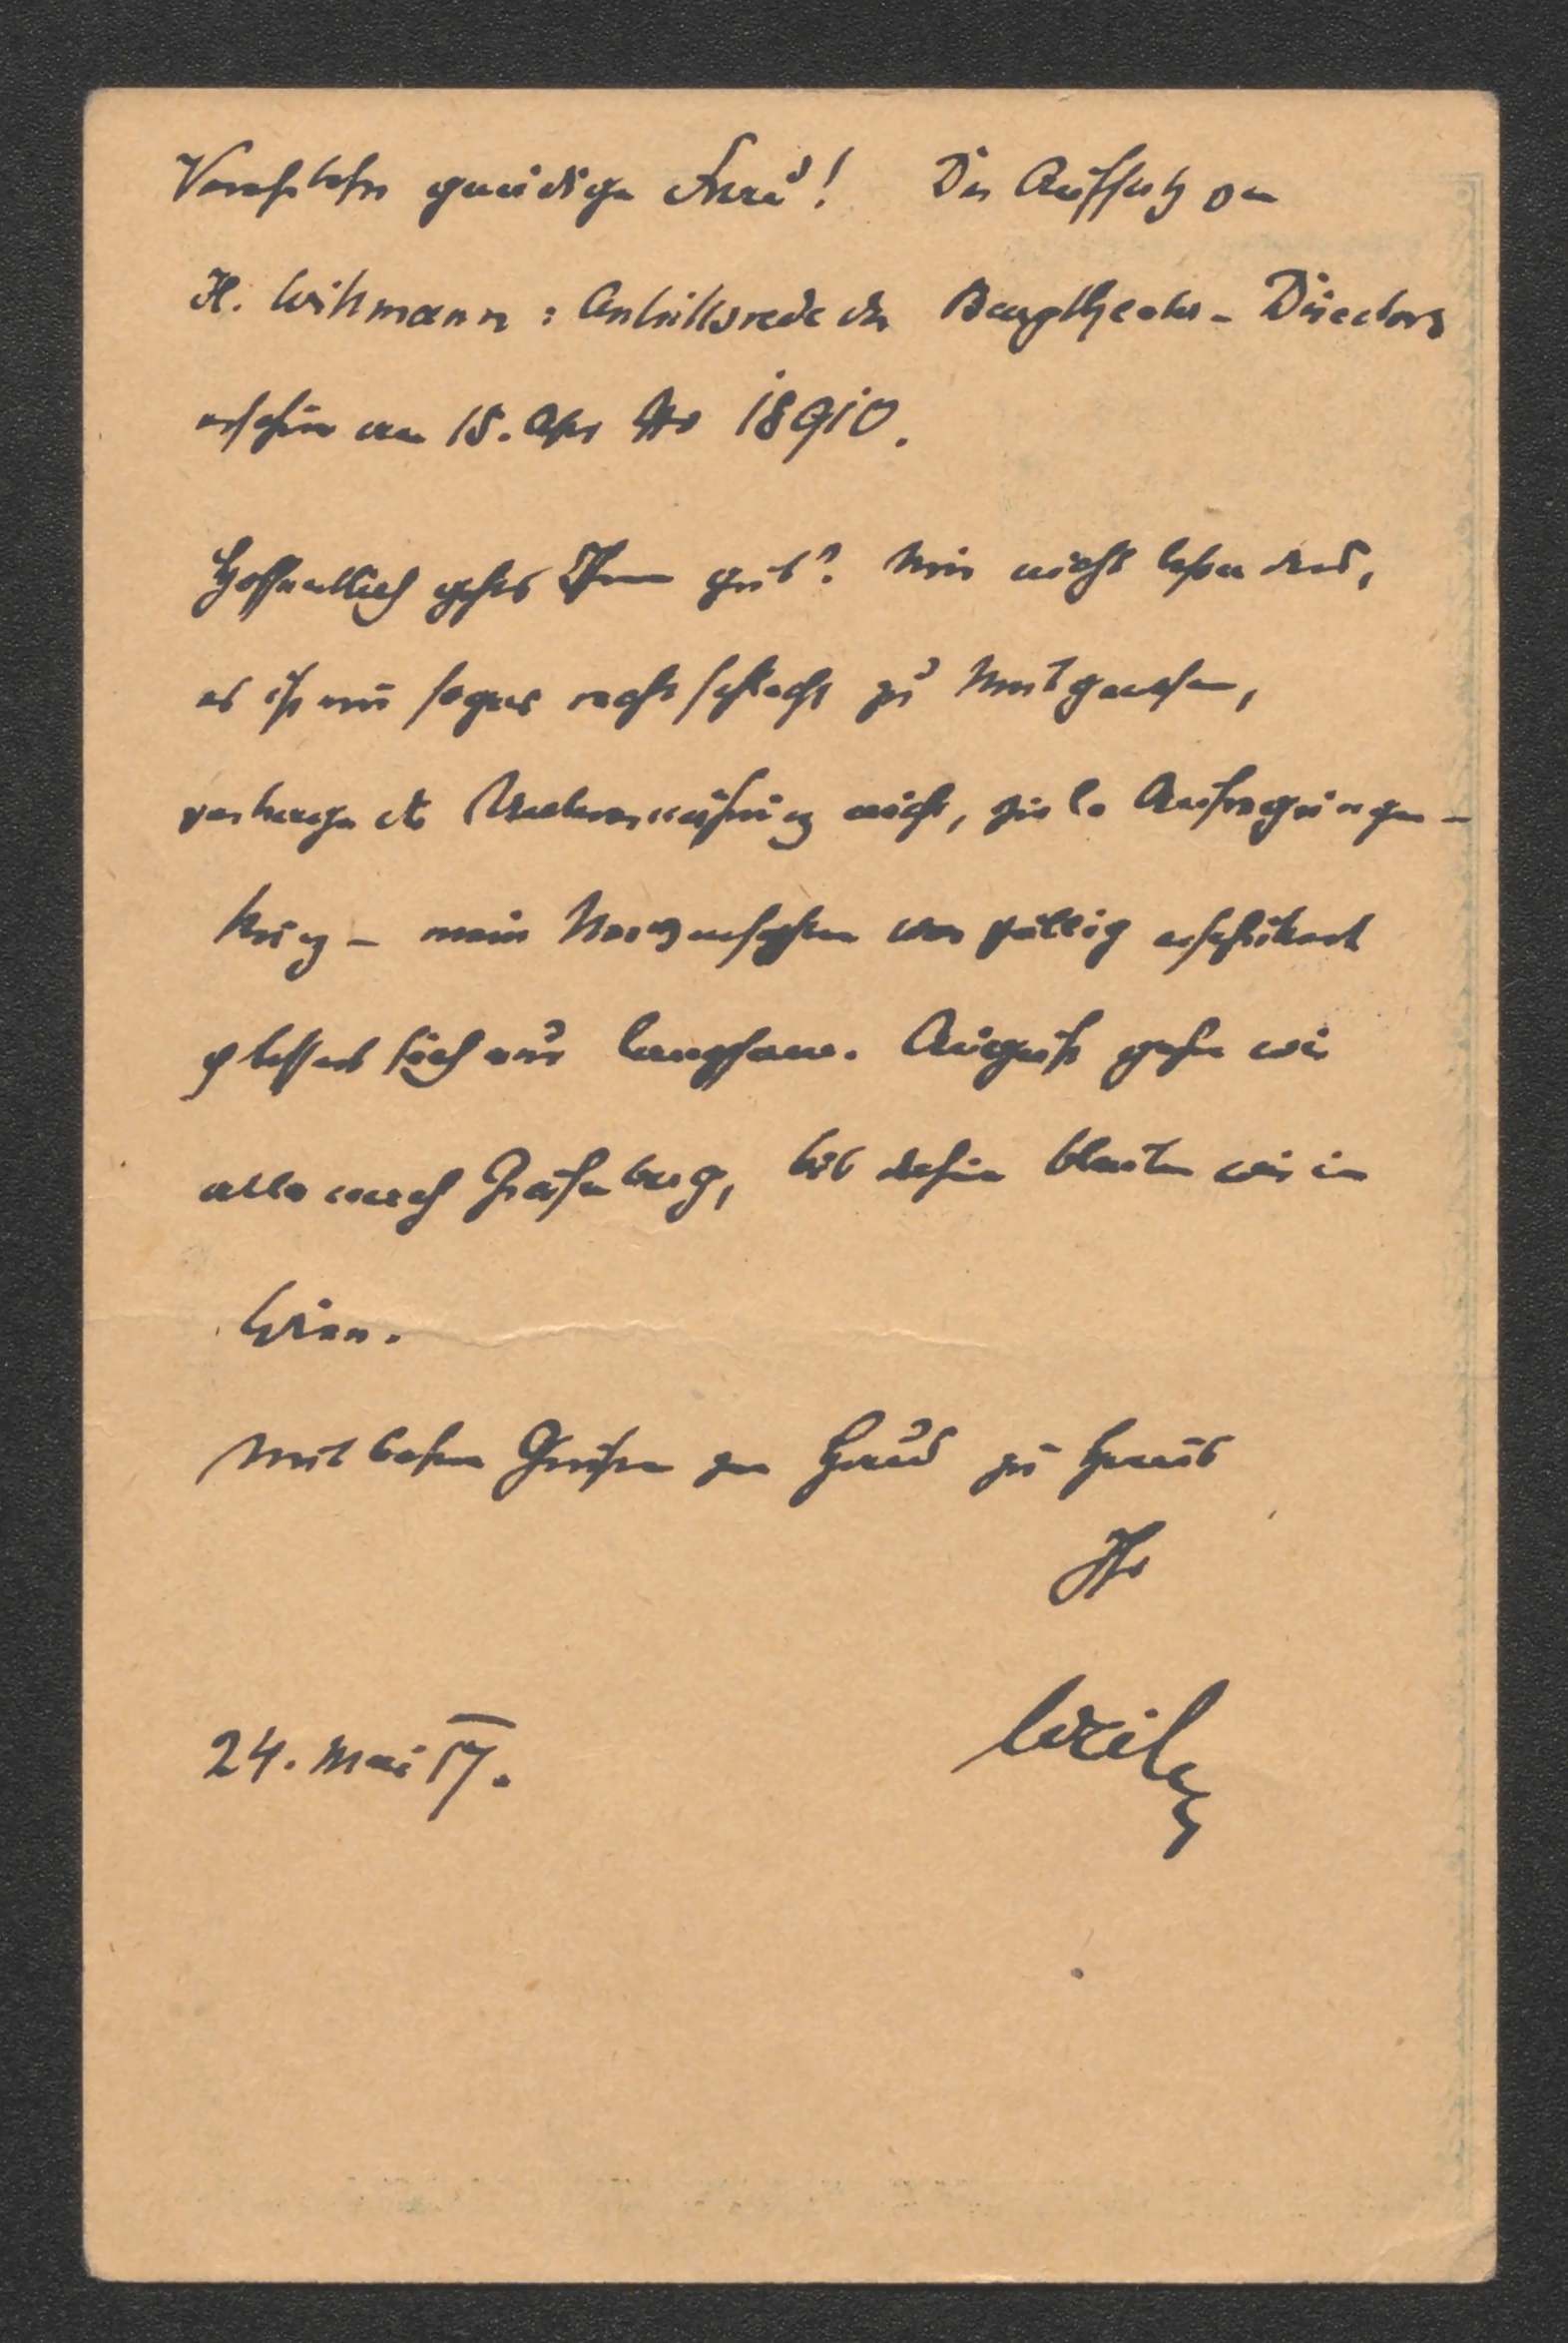 Verehrteste gnädige Frau! Der Aufsatz von
H. Wittmann: Antrittsrede des Burgtheater-Directors
erschien am 15. Apr No 18910.
Hoffentlich gehts Ihnen gut? Mir nicht besonders,
es ist mir sogar recht schlecht zu Mut gewesen,
vertrage die Unterernährung nicht, viele Aufregungen –
Krieg – mein Nervensystem war völlig erschüttert
& bessert sich nur langsam. August gehen wir
alle nach Gräfenberg, bis dahin bleiben wir in
Wien.
Mit besten Grüßen von Haus zu Haus
Ihr
24. Mai 17.